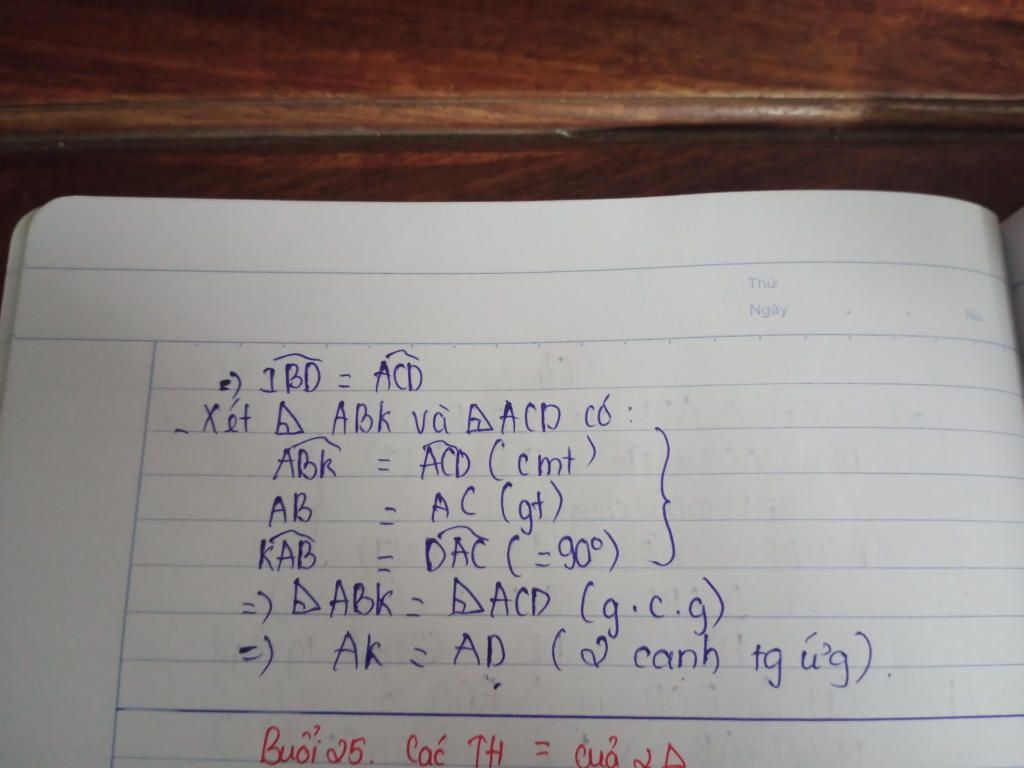 Thứ
Ngày
No.
=) IBD = ACD
- Xét Δ ABK và Δ ACD có :
ABK = ACD ( cmt )
AB = AC (gt)
KAB = DAC ( = 90°)
=) Δ ABK = Δ ACD (g.c.g)
=) AK = AD ( 2 canh tg ứg ).
Buổi 25. Các TH = của 2 Δ